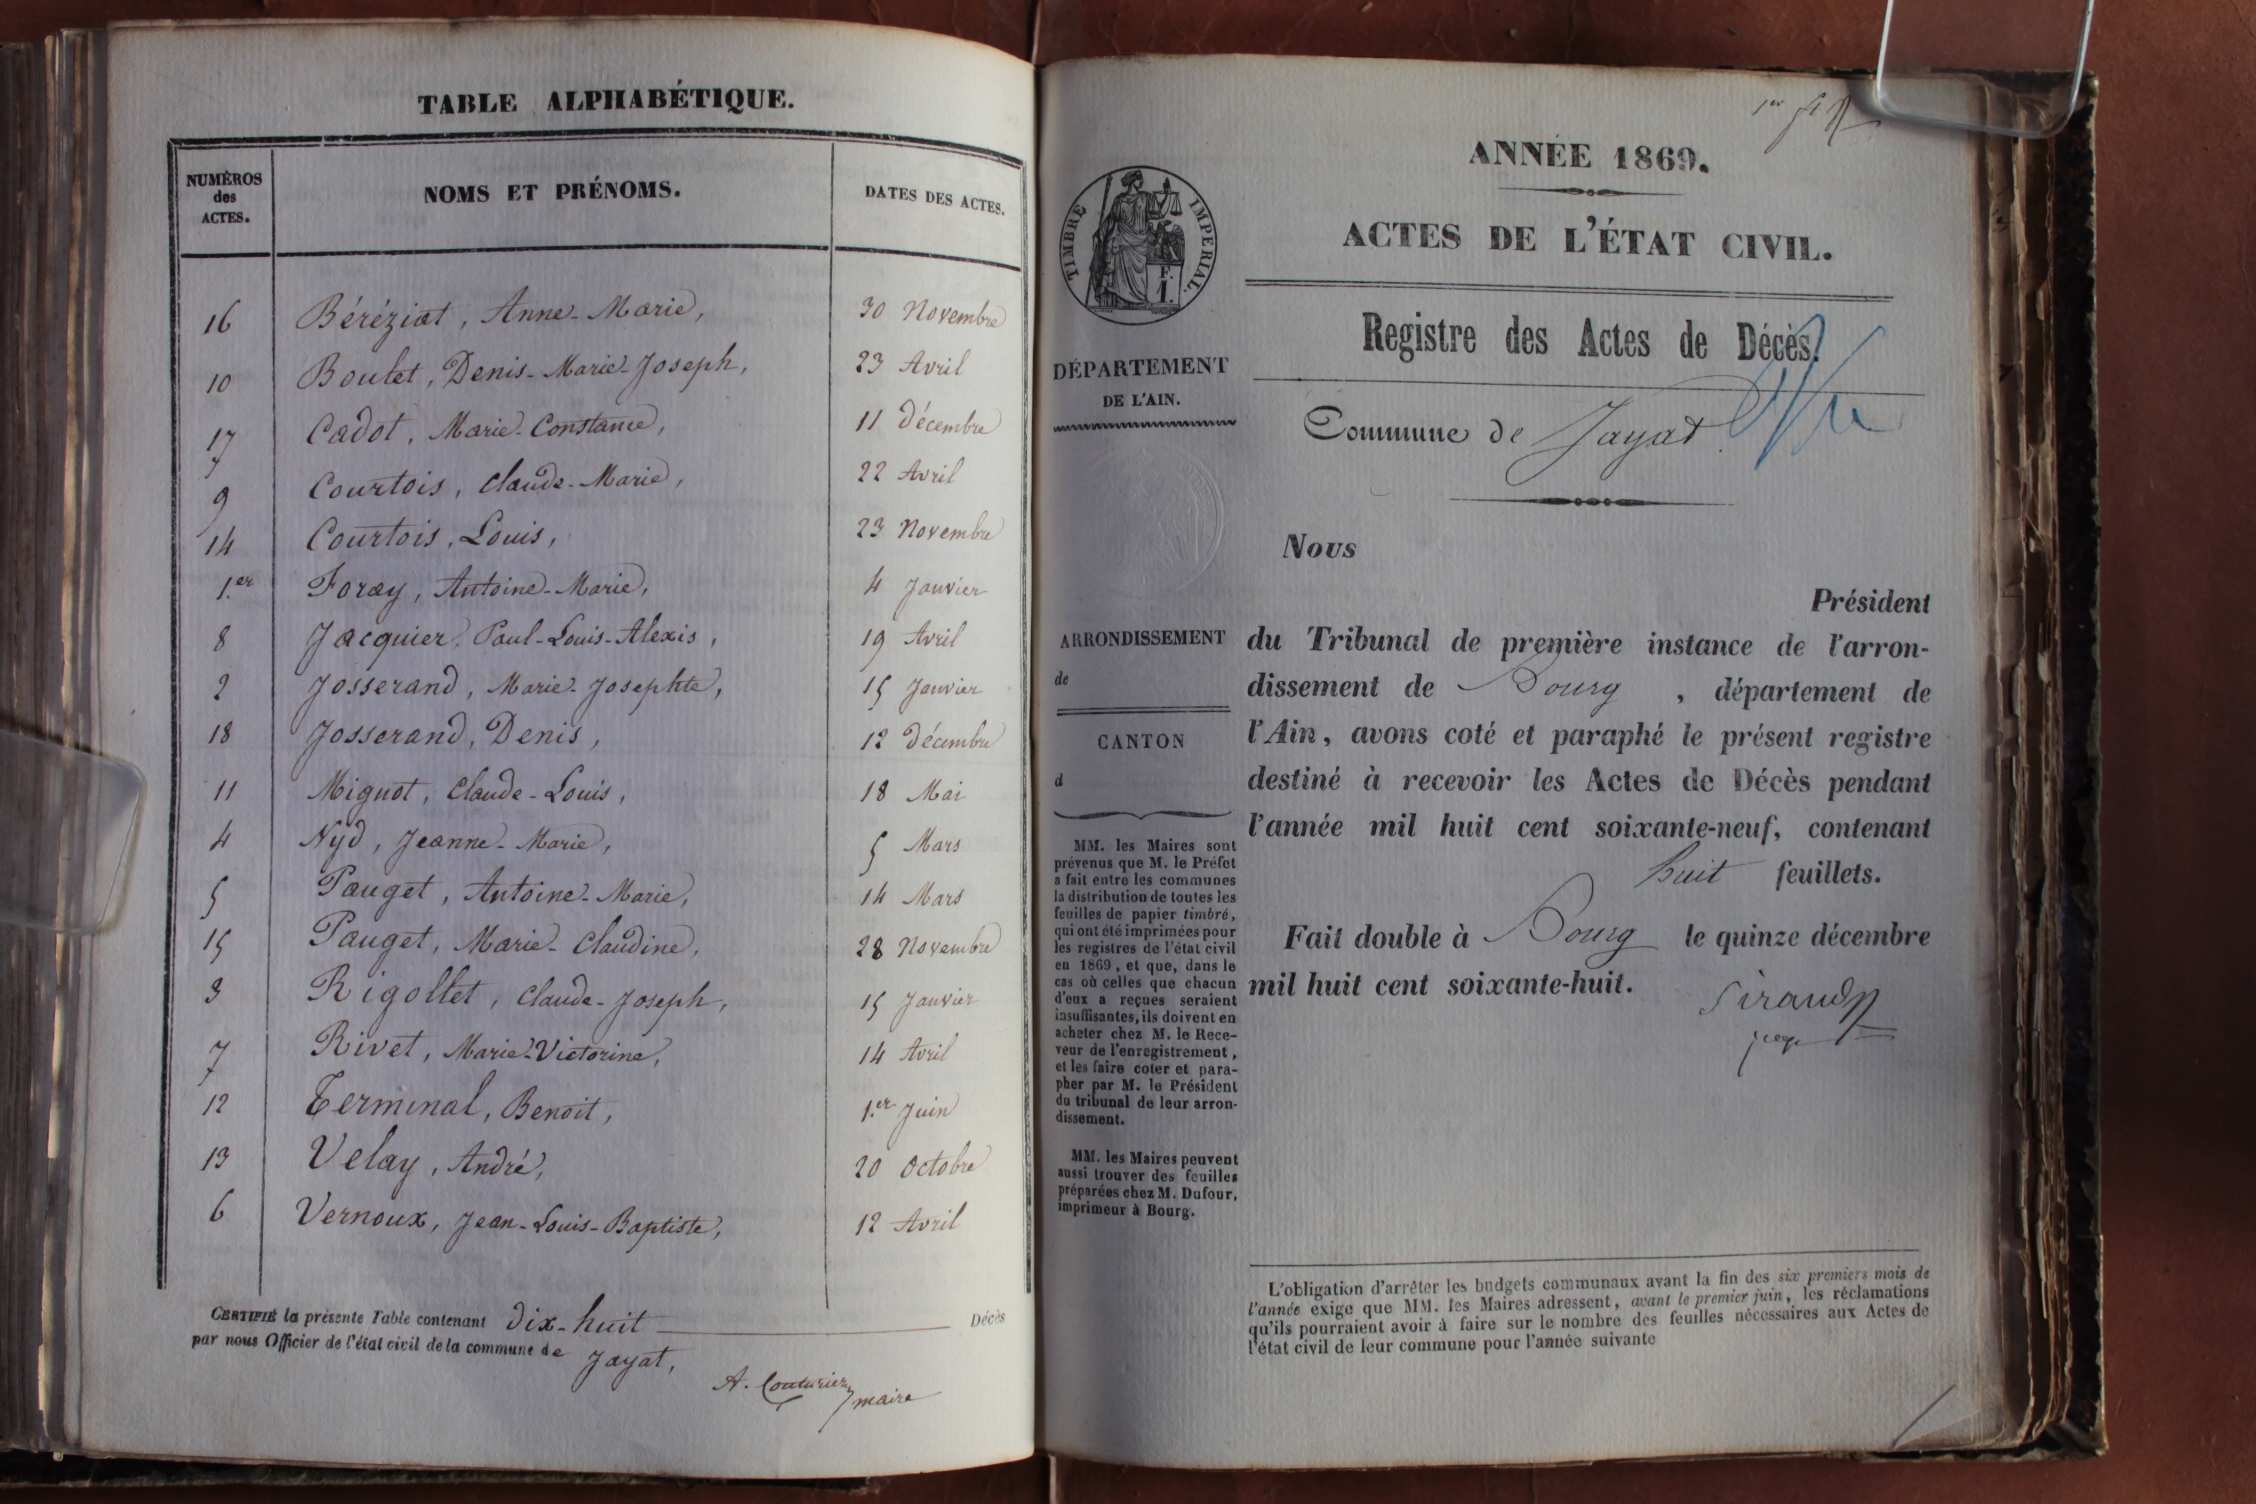 TABLE ALPHABÉTIQUE.
NUMÉROS
des
ACTES.
NOMS ET PRÉNOMS.
DATES DES ACTES.
16 Béréziat, Anne-Marie, 30 Novembre
10 Boulet, Denis-Marie-Joseph, 23 Avril
17 Cadot, Marie-Constance, 11 Décembre
9 Courtois, Claude-Marie, 22 Avril
14 Courtois, Louis, 23 Novembre
1.er Foray, Antoine-Marie, 4 Janvier
8 Jacquier, Paul-Louis-Alexis, 19 Avril
2 Josserand, Marie-Josephte, 15 Janvier
18 Josserand, Denis, 12 Décembre
11 Mignot, Claude-Louis, 18 Mai
4 Nyd, Jeanne-Marie, 5 Mars
5 Pauget, Antoine-Marie, 14 Mars
15 Pauget, Marie-Claudine, 28 Novembre
3 Rigollet, Claude-Joseph, 15 Janvier
7 Rivet, Marie-Victorine, 14 Avril
12 Terminal, Benoit, 1.er Juin
13 Velay, André, 20 Octobre
6 Vernoux, Jean-Louis-Baptiste, 12 Avril
CERTIFIÉ la présente Table contenant dix-huit Décès
par nous Officier de l'état civil de la commune de Jayat,
A. Couturier
maire
1er
ANNÉE 1869.
ACTES DE L'ÉTAT CIVIL.
TIMBRE IMPERIAL.
F.
I.
DÉPARTEMENT
DE L'AIN.
ARRONDISSEMENT
de
CANTON
d
MM. les Maires sont
prévenus que M. le Préfet
a fait entre les communes
la distribution de toutes les
feuilles de papier timbré,
qui ont été imprimées pour
les registres de l'état civil
en 1869, et que, dans le
cas où celles que chacun
d'eux a reçues seraient
insuffisantes, ils doivent en
acheter chez M. le Rece-
veur de l'enregistrement,
et les faire coter et para-
pher par M. le Président
du tribunal de leur arron-
dissement.
MM. les Maires peuvent
aussi trouver des feuilles
préparées chez M. Dufour,
imprimeur à Bourg.
Registre des Actes de Décès.
Commune de Jayat
Nous
Président
du Tribunal de première instance de l'arron-
dissement de Bourg, département de
l'Ain, avons coté et paraphé le présent registre
destiné à recevoir les Actes de Décès pendant
l'année mil huit cent soixante-neuf, contenant
huit feuillets.
Fait double à Bourg le quinze décembre
mil huit cent soixante-huit.
Siraud
L'obligation d'arrêter les budgets communaux avant la fin des six premiers mois de
l'année exige que MM. les Maires adressent, avant le premier juin, les réclamations
qu'ils pourraient avoir à faire sur le nombre des feuilles nécessaires aux Actes de
l'état civil de leur commune pour l'année suivante